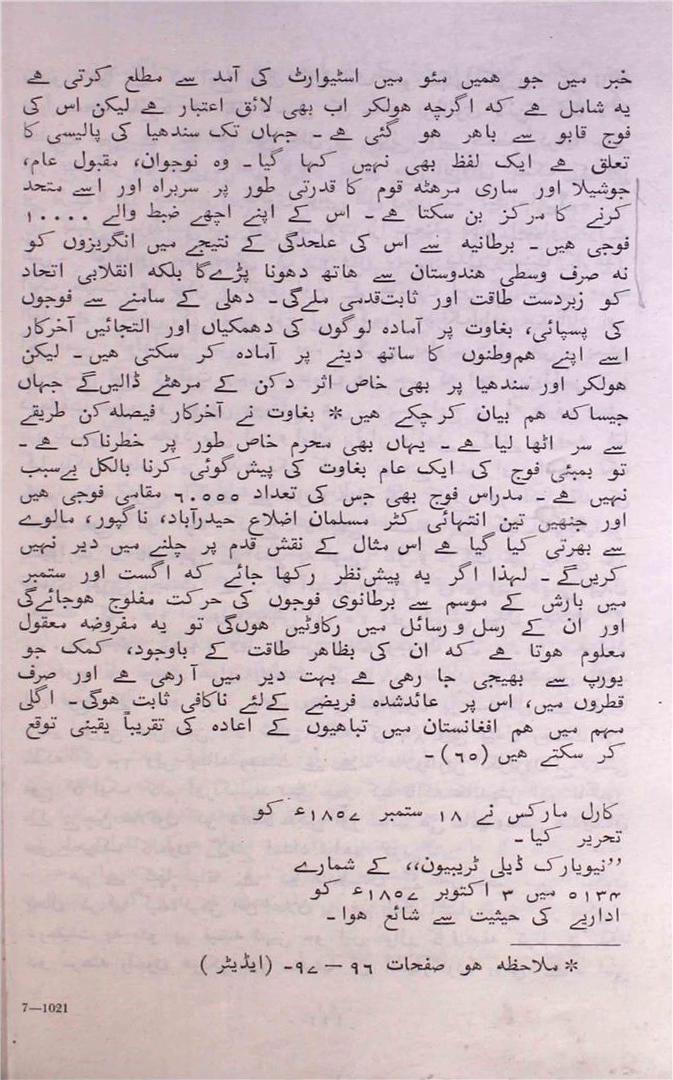 خبر میں جو ہمیں مئو میں اسٹیوارٹ کی آمد سے مطلع کرتی ہے
یہ شامل ہے کہ اگرچہ ہولکر اب بھی لائق اعتبار ہے لیکن اس کی
فوج قابو سے باہر ہو گئی ہے۔ جہاں تک سندھیا کی پالیسی کا
تعلق ہے ایک لفظ بھی نہیں کہا گیا۔ وہ نوجوان، مقبول عام،
جوشیلا اور ساری مرہٹہ قوم کا قدرتی طور پر سربراہ اور اسے متحد
کرنے کا مرکز بن سکتا ہے۔ اس کے اپنے اچھے ضبط والے ۱۰۰۰۰
فوجی ہیں۔ برطانیہ سے اس کی علحدگی کے نتیجے میں انگریزوں کو
نہ صرف وسطی ہندوستان سے ہاتھ دھونا پڑےگا بلکہ انقلابی اتحاد
کو زبردست طاقت اور ثابت‌قدمی ملےگی۔ دہلی کے سامنے سے فوجوں
کی پسپائی، بغاوت پر آمادہ لوگوں کی دھمکیاں اور التجائیں آخرکار
اسے اپنے ہم‌وطنوں کا ساتھ دینے پر آمادہ کر سکتی ہیں۔ لیکن
ہولکر اور سندھیا پر بھی خاص اثر دکن کے مرہٹے ڈالیں‌گے جہاں
جیسا‌کہ ہم بیان کرچکے ہیں* بغاوت نے آخرکار فیصلہ‌کن طریقے
سے سر اٹھا لیا ہے۔ یہاں بھی محرم خاص طور پر خطرناک ہے۔
تو بمبئی فوج کی ایک عام بغاوت کی پیش‌گوئی کرنا بالکل بےسبب
نہیں ہے۔ مدراس فوج بھی جس کی تعداد ۶۰،۵۵۵ مقامی فوجی ہیں
اور جنھیں تین انتہائی کٹر مسلمان اضلاع حیدرآباد، ناگپور، مالوے
سے بھرتی کیا گیا ہے اس مثال کے نقش قدم پر چلنے میں دیر نہیں
کریں‌گے۔ لہذا اگر یہ پیش‌نظر رکھا جائے کہ اگست اور ستمبر
میں بارش کے موسم سے برطانوی فوجوں کی حرکت مفلوج ہوجائے‌گی
اور ان کے رسل و رسائل میں رکاوٹیں ہوں‌گی تو یہ مفروضہ معقول
معلوم ہوتا ہے کہ ان کی بظاہر طاقت کے باوجود، کمک جو
یورپ سے بھیجی جا رہی ہے بہت دیر میں آ رہی ہے اور صرف
قطروں میں، اس پر عائدشدہ فریضے کےلئے ناکافی ثابت ہوگی۔ اگلی
مہم میں ہم افغانستان میں تباہیوں کے اعادہ کی تقریباً یقینی توقع
کر سکتے ہیں (۶۵)۔
کارل مارکس نے ۱۸ ستمبر ۱۸۵۷ء کو
تحریر کیا۔
”نیویارک ڈیلی ٹریبیون،، کے شمارے
۵۱۳۴ میں ۳ اکتوبر ۱۸۵۷ء کو
اداریے کی حیثیت سے شائع ہوا۔
* ملاحظہ ہو صفحات ۹۶ — ۹۷۔ (ایڈیٹر)
7—1021